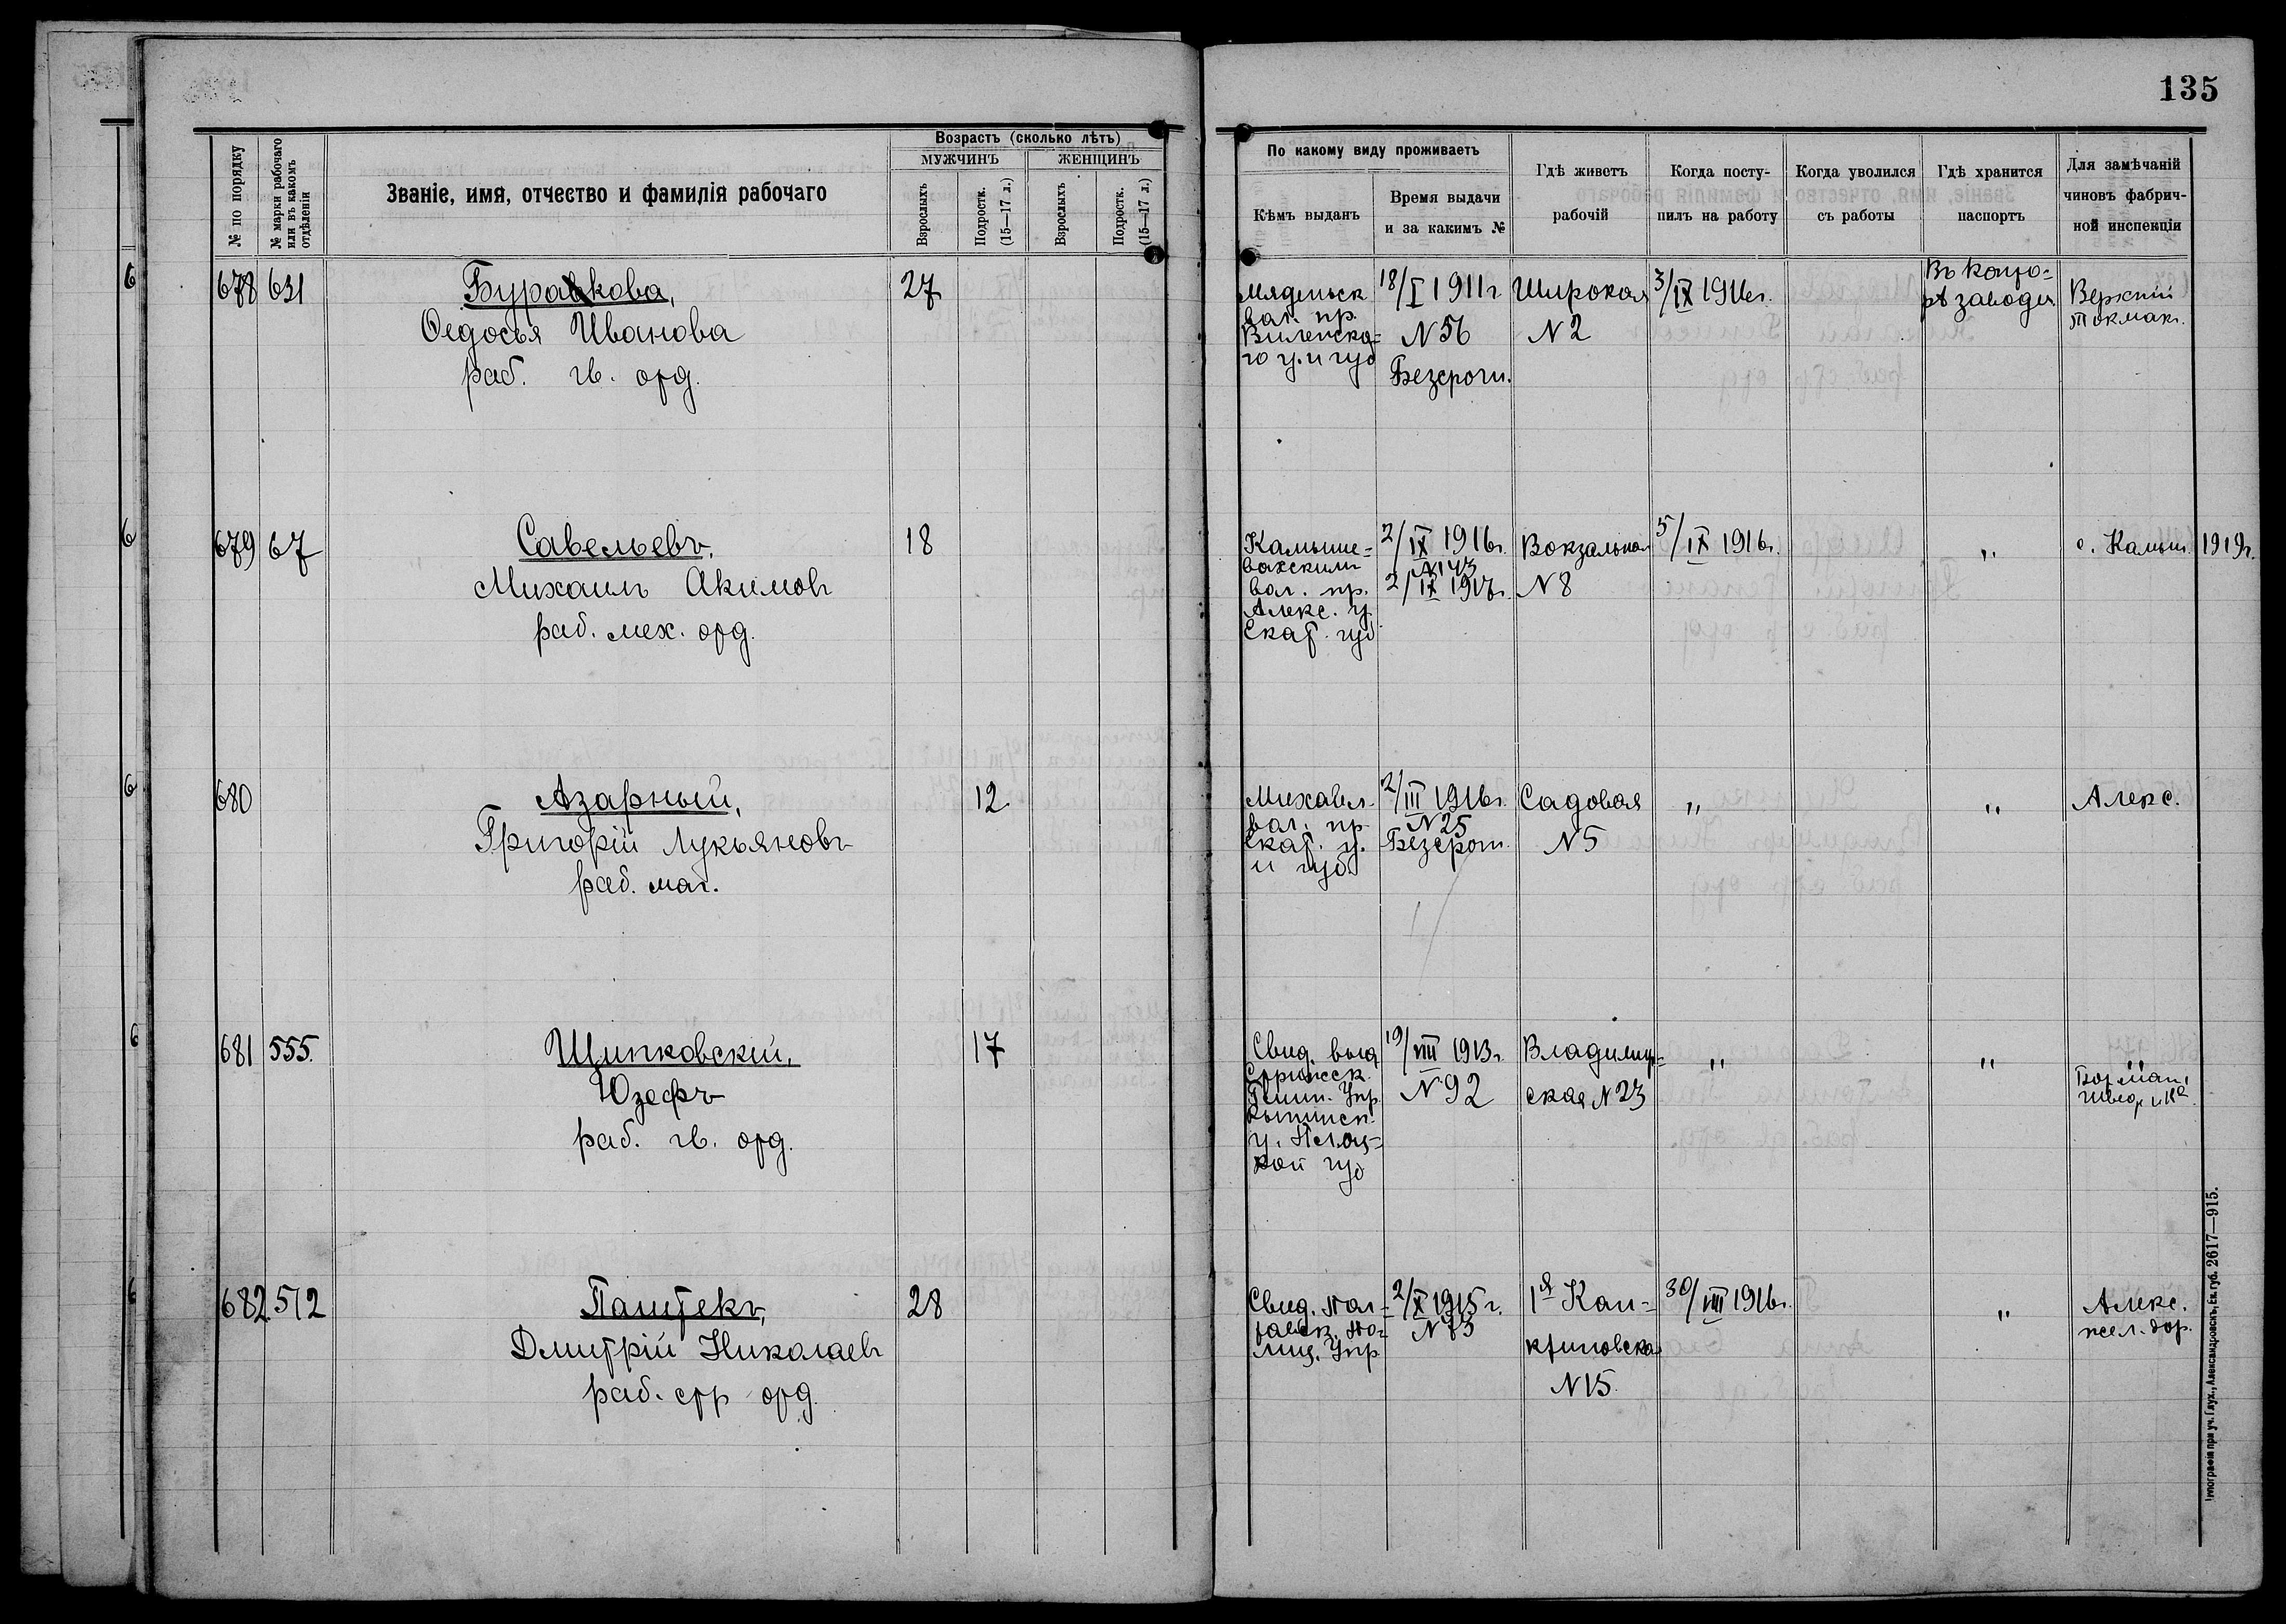 135
№ по порядку
№ марки рабочаго или въ какомъ отдѣленіи
Званіе, имя, отчество и фамилія рабочаго
Возрастъ (сколько лѣтъ)
МУЖЧИНЪ
ЖЕНЩИНЪ
Взрослыхъ
Подростк. (15—17 л.)
Взрослыхъ
Подростк. (15—17 л.)
По какому виду проживаетъ
Кѣмъ выданъ
Время выдачи
и за какимъ №
Гдѣ живетъ
рабочій
Когда посту-
пилъ на работу
Когда уволился
съ работы
Гдѣ хранится
паспортъ
Для замѣчаній
чиновъ фабрич-
ной инспекціи
678 631
Буравкова,
Ѳедосья Иванова
раб. гв. отд.
27
Мядельск
вол. пр.
Виленска-
го у. и губ
18/I 1911 г
N 56
Безсрочн.
Широкая
N 2
3/IX 1916 г.
Въ конто-
рѣ завода
Верхній
Токмак.
679 67
Савельевъ,
Михаилъ Акимовъ
раб. мех. отд.
18
Камыше-
вахским
вол. пр.
Алекс. у.
Екат. губ
2/IX 1916 г.
N 143
2/IX 1917 г.
Вокзальная
N 8
5/IX 1916 г.
"
с. Камыш.
1919 г.
680
Азарный,
Григорій Лукьяновъ
раб. маг.
12
Михайл.
вол. пр
Екат. у.
и губ
2/III 1916 г.
N 25
Безсроч.
Садовая
N 5
"
"
Алекс.
681 555.
Щипковскій,
Юзефъ
раб. гв. отд.
17
Свид. выд
Гмин. Упр.
кой губ
19/VIII 1913 г.
N 92
Владимир-
ская N 23
"
"
"
682 512
Паштекъ,
Дмитрій Николаевъ
раб. стр отд
28
Свид. Пол-
тавск. По-
лиц. Упр
2/X 1915 г.
N 73
1я Кан-
криновская
N 15
30/VIII 1916 г.
"
Алекс.
жел. дор.
Типографія при уч. Глух., Александровскъ, Ек. губ. 2617—915.